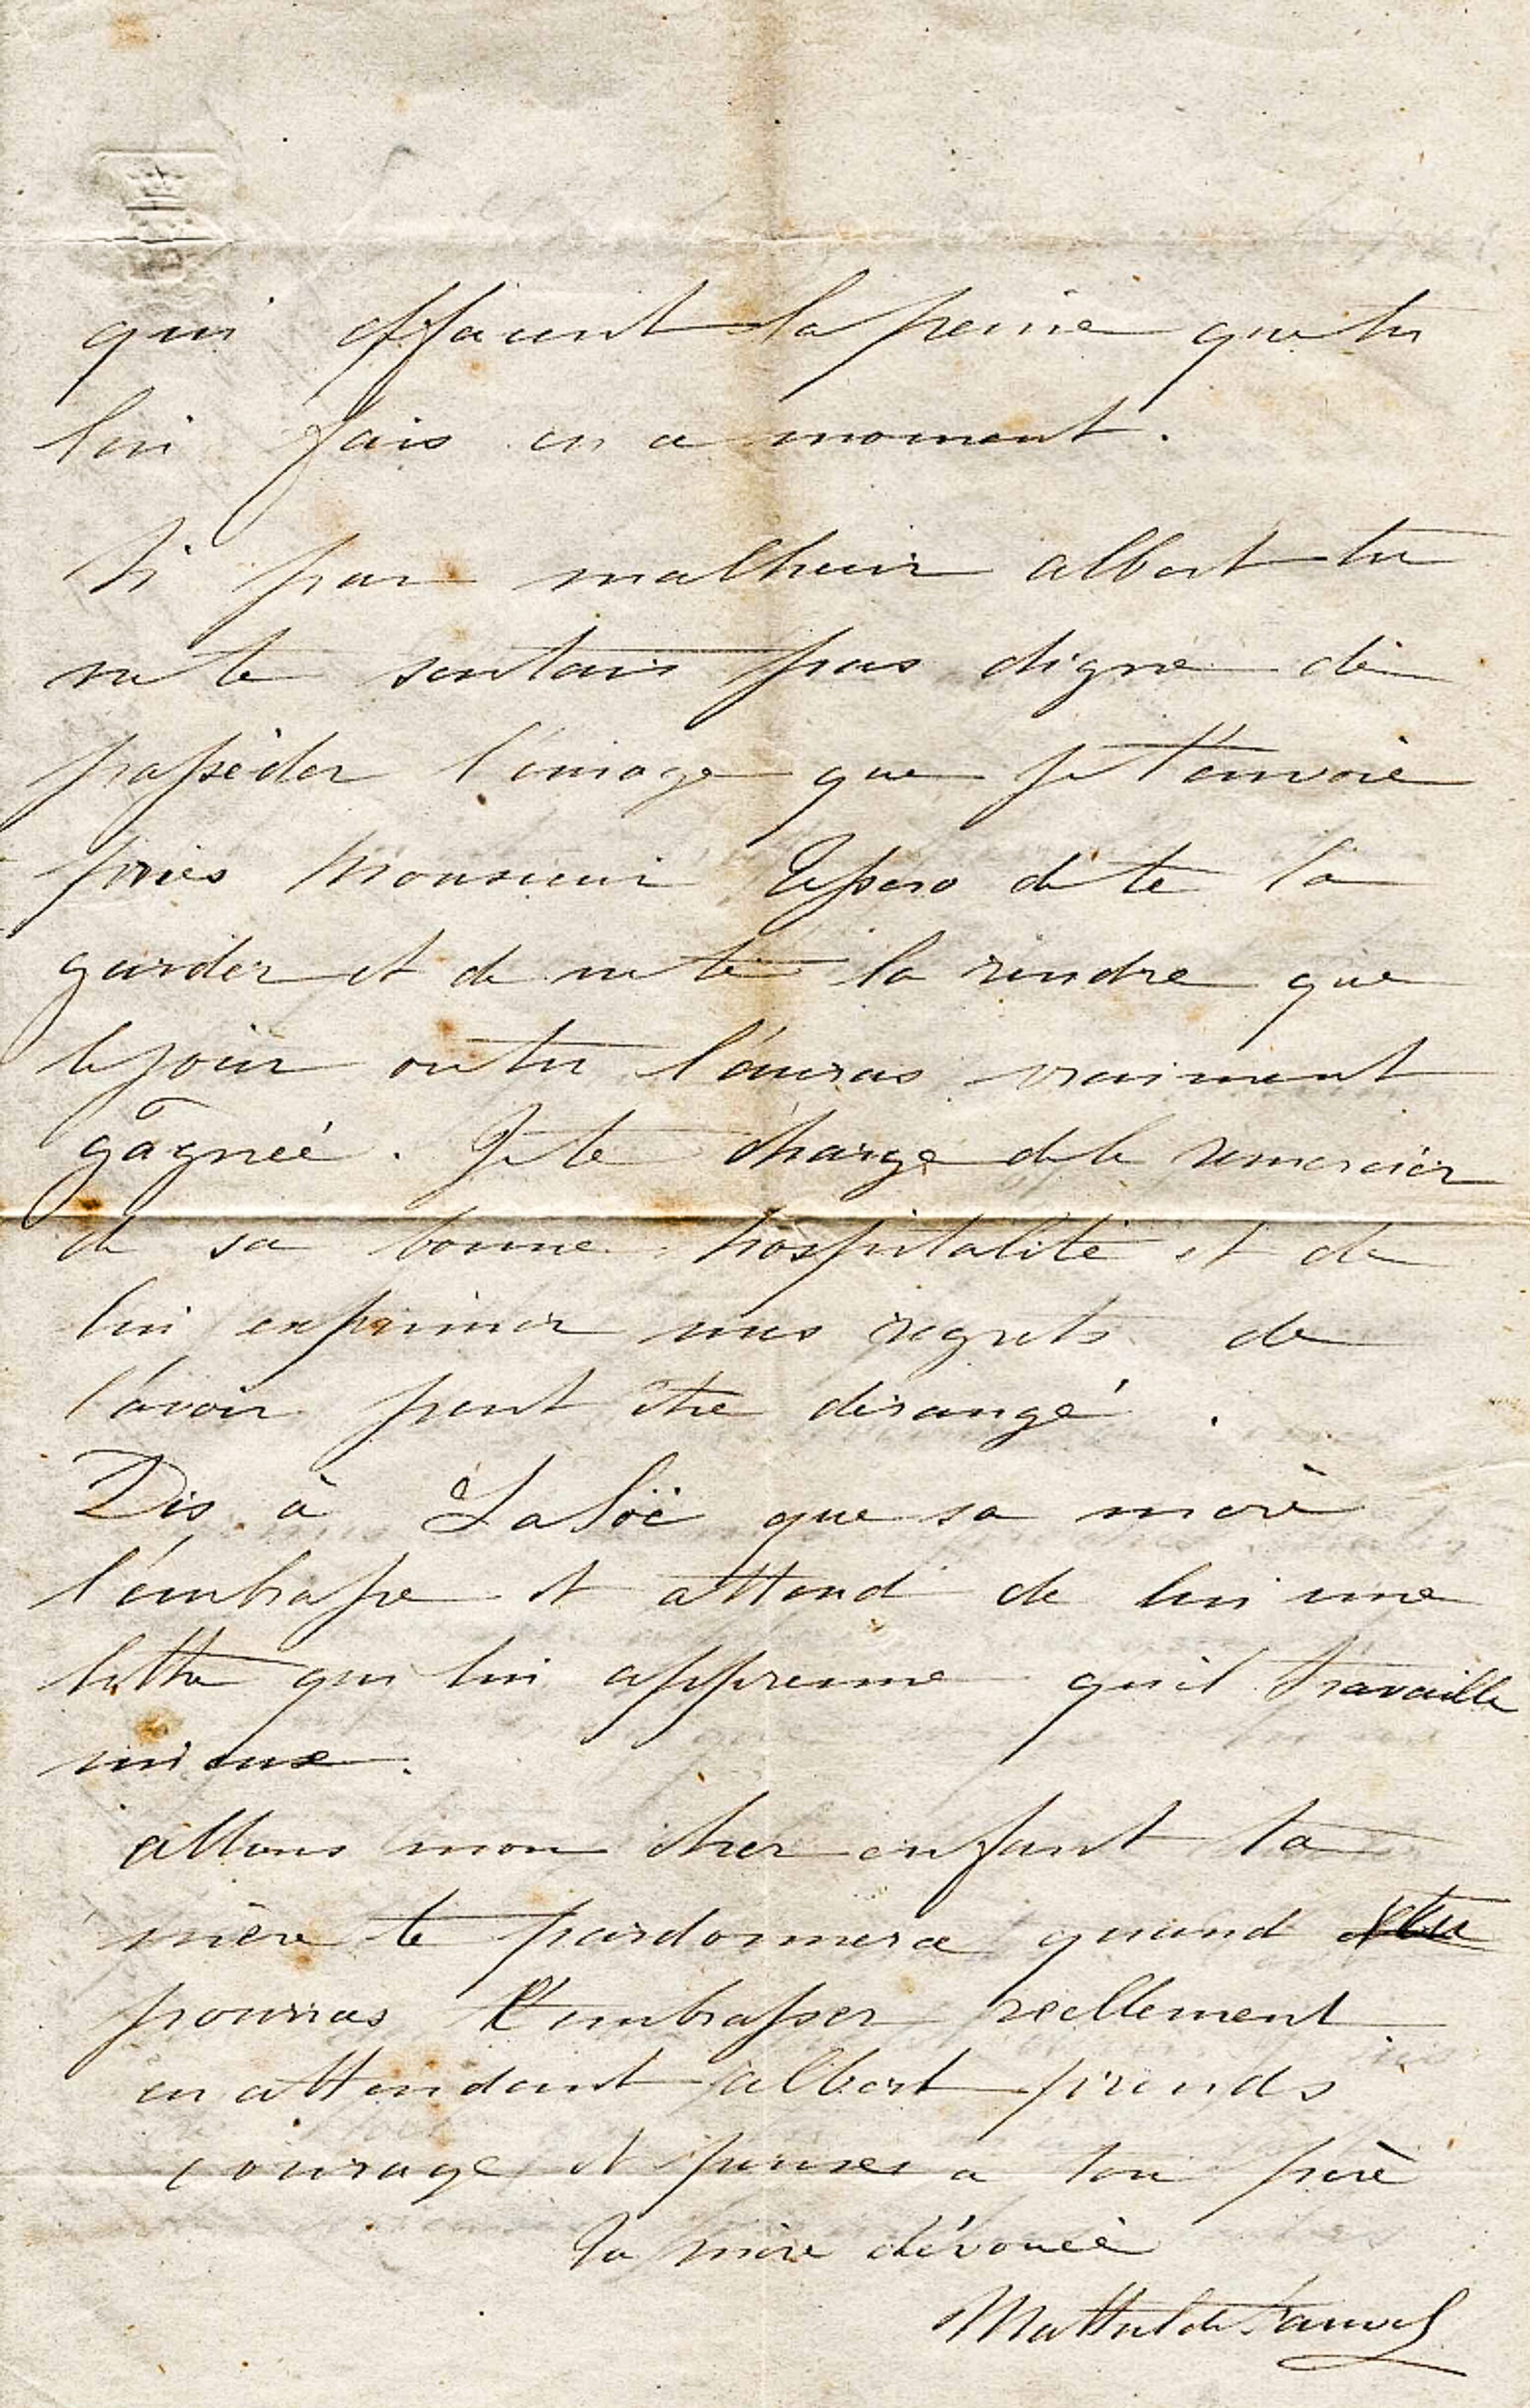 qui effacent la peine que tu
lui fais en ce moment.
Si par malheur albert tu
ne te sentais pas digne de
posséder l'image que je t'envoie
pries Monsieur de te la
garder et de ne te la rendre que
le jour ou tu l'auras vraiment
gagnée. Je te charge de le remercier
de sa bonne hospitalité et de
lui exprimer mes regrets de
l'avoir peut être dérangé.
Dis à que sa mère
l'embrasse et attend de lui une
lettre qui lui apprenne qu'il travaille
mieux.
allons mon cher enfant ta
mère te pardonnera quand tu
pourras t'embrasser réellement.
en attendant albert prends
courage et penses a ton père
Ta mère dévouée